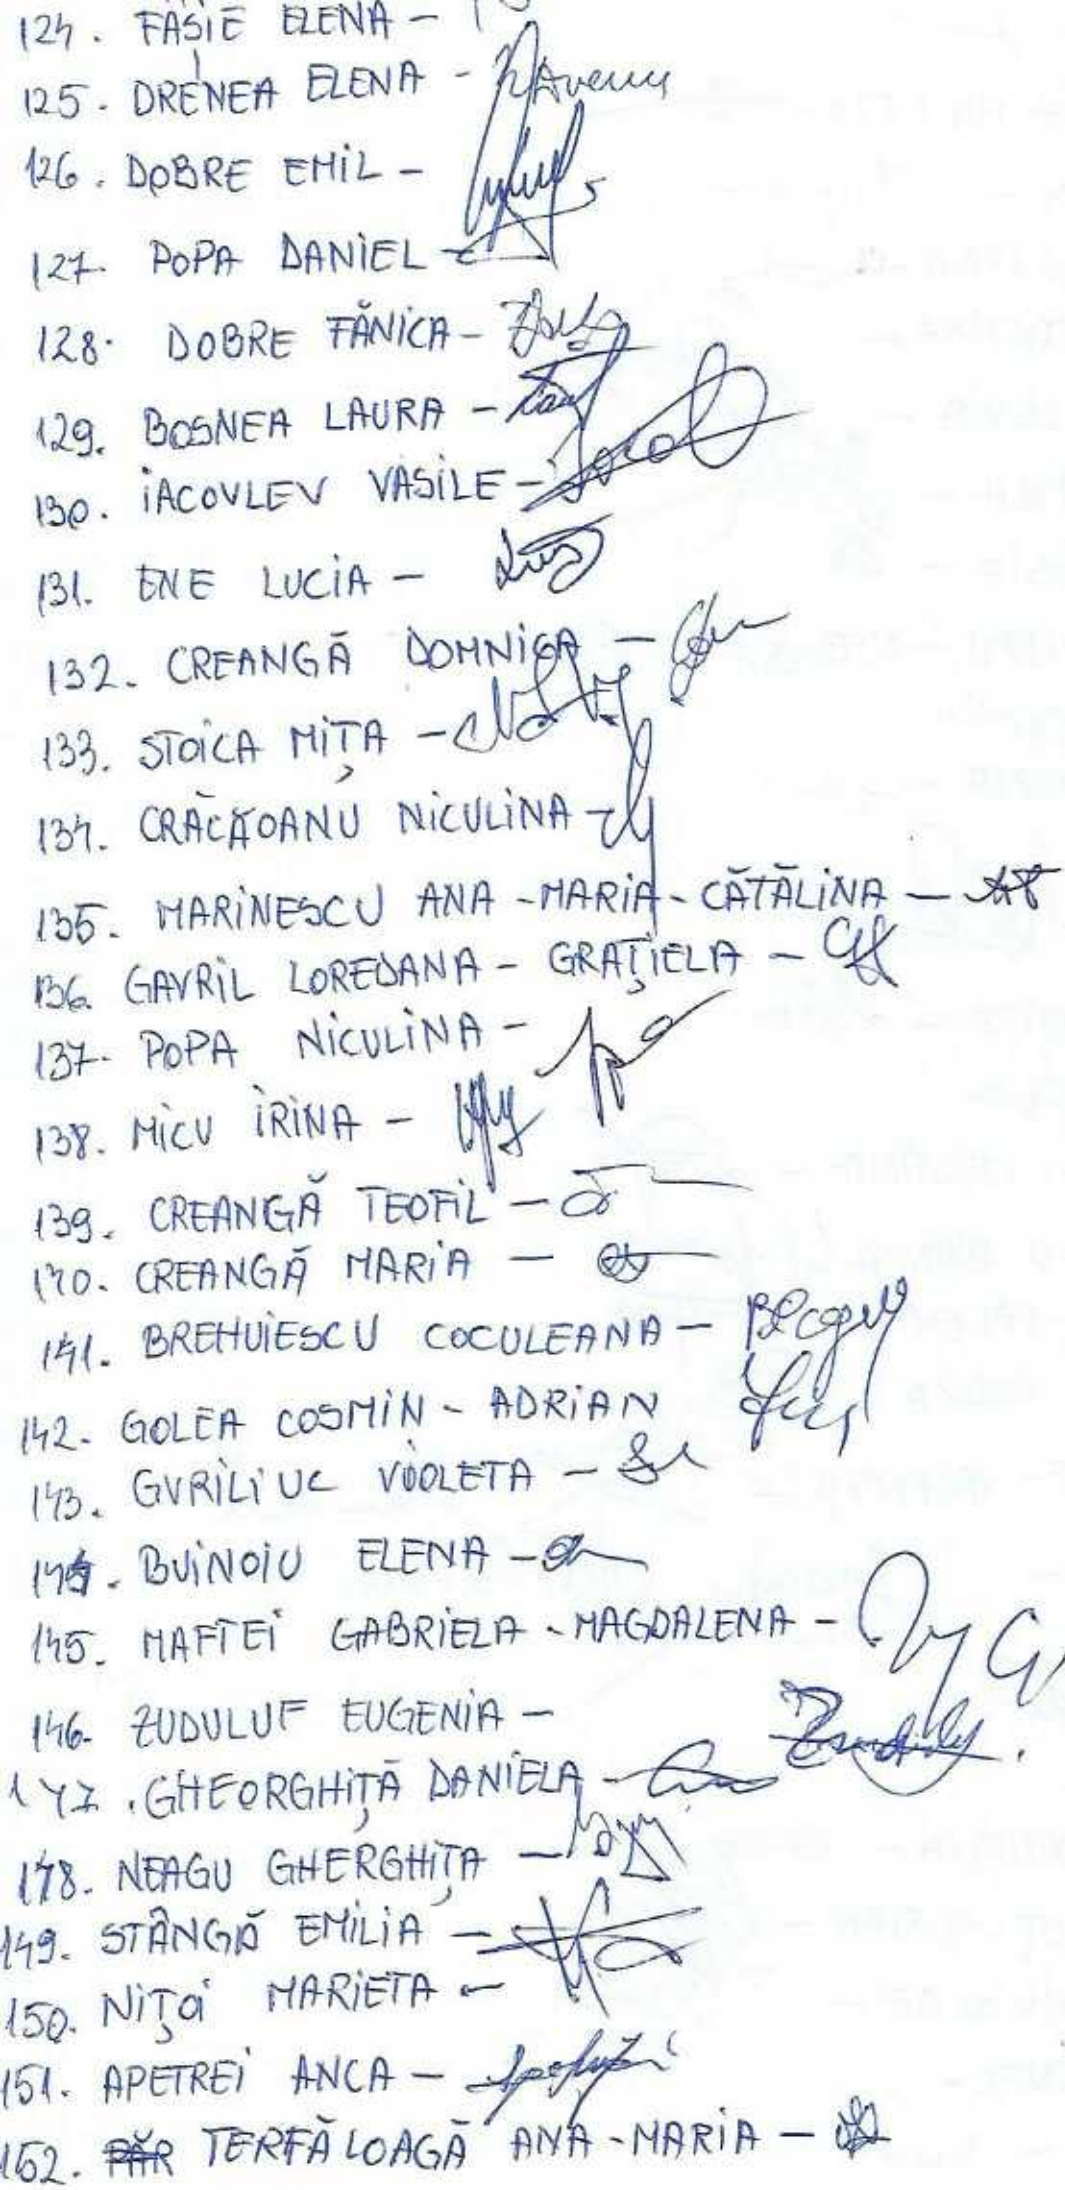 124. FĂȘIE ELENA -
125. DRENEA ELENA -
126. DOBRE EMIL -
127. POPA DANIEL -
128. DOBRE FĂNICA -
129. BOSNEA LAURA -
130. IACOVLEV VASILE -
131. ENE LUCIA -
132. CREANGĂ DOMNICA -
133. STOICA MIȚA -
134. NICULINA -
135. MARINESCU ANA - MARIA - CĂTĂLINA -
136. GAVRIL LOREDANA - GRAȚIELA -
137. POPA NICULINA -
138. MICU IRINA -
139. CREANGĂ TEOFIL -
140. CREANGĂ MARIA -
141. BREHUIESCU COCULEANA -
142. GOLEA COSMIN - ADRIAN
143. GURILIUC VIOLETA -
144. BUINOIU ELENA -
145. MAFTEI GABRIELA - MAGDALENA -
146. ZUDULUF EUGENIA -
147. GHEORGHIȚĂ DANIELA -
148. NEAGU GHERGHIȚA -
149. STÂNGĂ EMILIA -
150. NIȚOI MARIETA -
151. APETREI ANCA -
152. TERFĂLOAGĂ ANA - MARIA -